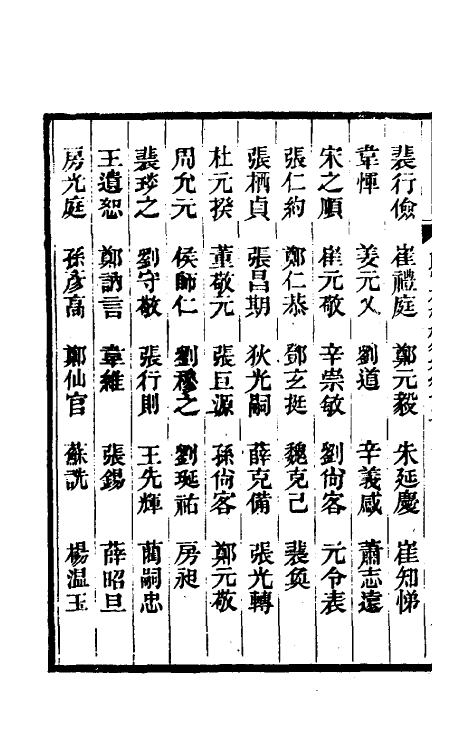 裴行儉 崔禮庭 鄭元毅 朱延慶 崔知悌
韋惲 姜元乂 劉道 辛義感 蕭志遠
宋之順 崔元敬 辛崇敏 劉尙客 元令表
張仁約 鄭仁恭 鄧玄挺 魏克己 裴奐
張栖貞 張昌期 狄光嗣 薛克備 張光轉
杜元揆 董敬元 張巨源 孫尙客 鄭元敬
周允元 侯師仁 劉穆之 劉珽祐 房昶
裴珍之 劉守敬 張行則 王先輝 藺嗣忠
王遺恕 鄭訥言 韋維 張錫 薛昭旦
房光庭 孫彥高 鄭仙官 蘇詵 楊温玉